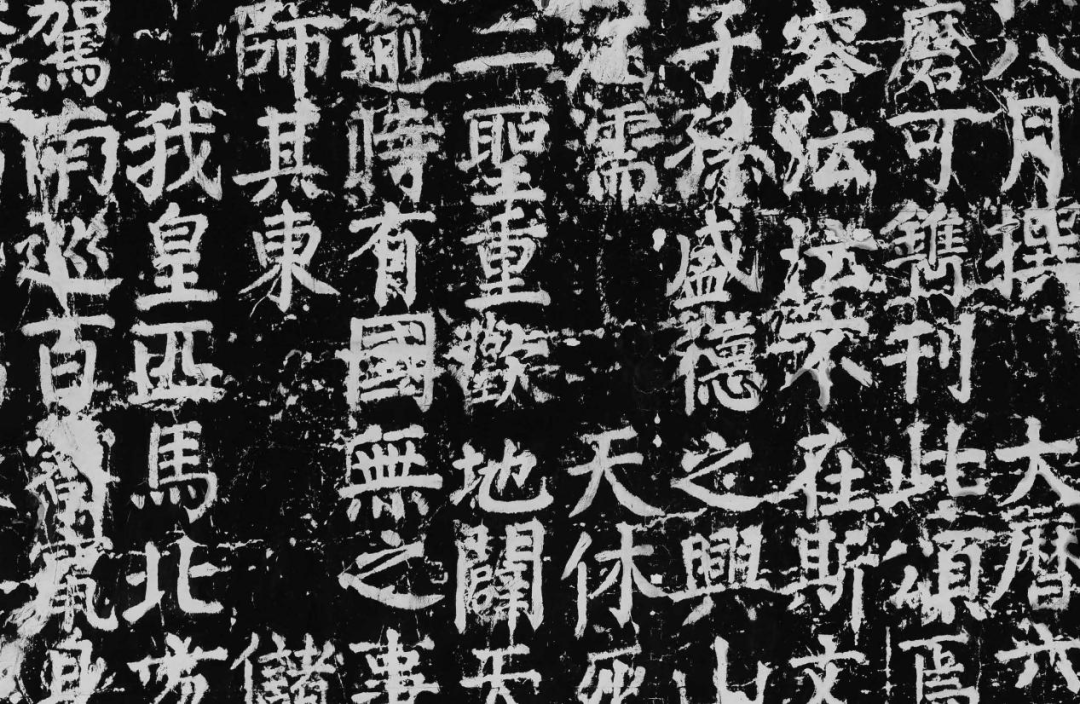 駕南巡百寮竄身
我皇匹馬北方
師其東 儲
逾時有國無之事
二聖重歡地闢天
涵濡 天休死
子孫盛德之興山
容沄沄不在斯文
磨可鐫刊此頌焉
八月撰 大曆六